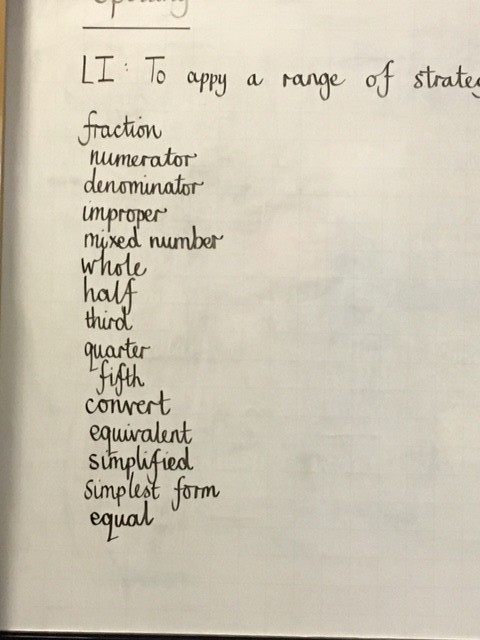 Spelling
LI: To appy a range of
fraction
numerator
denominator
improper
mixed number
whole
half
third
quarter
fifth
convert
equivalent
simplified
simplest form
equal